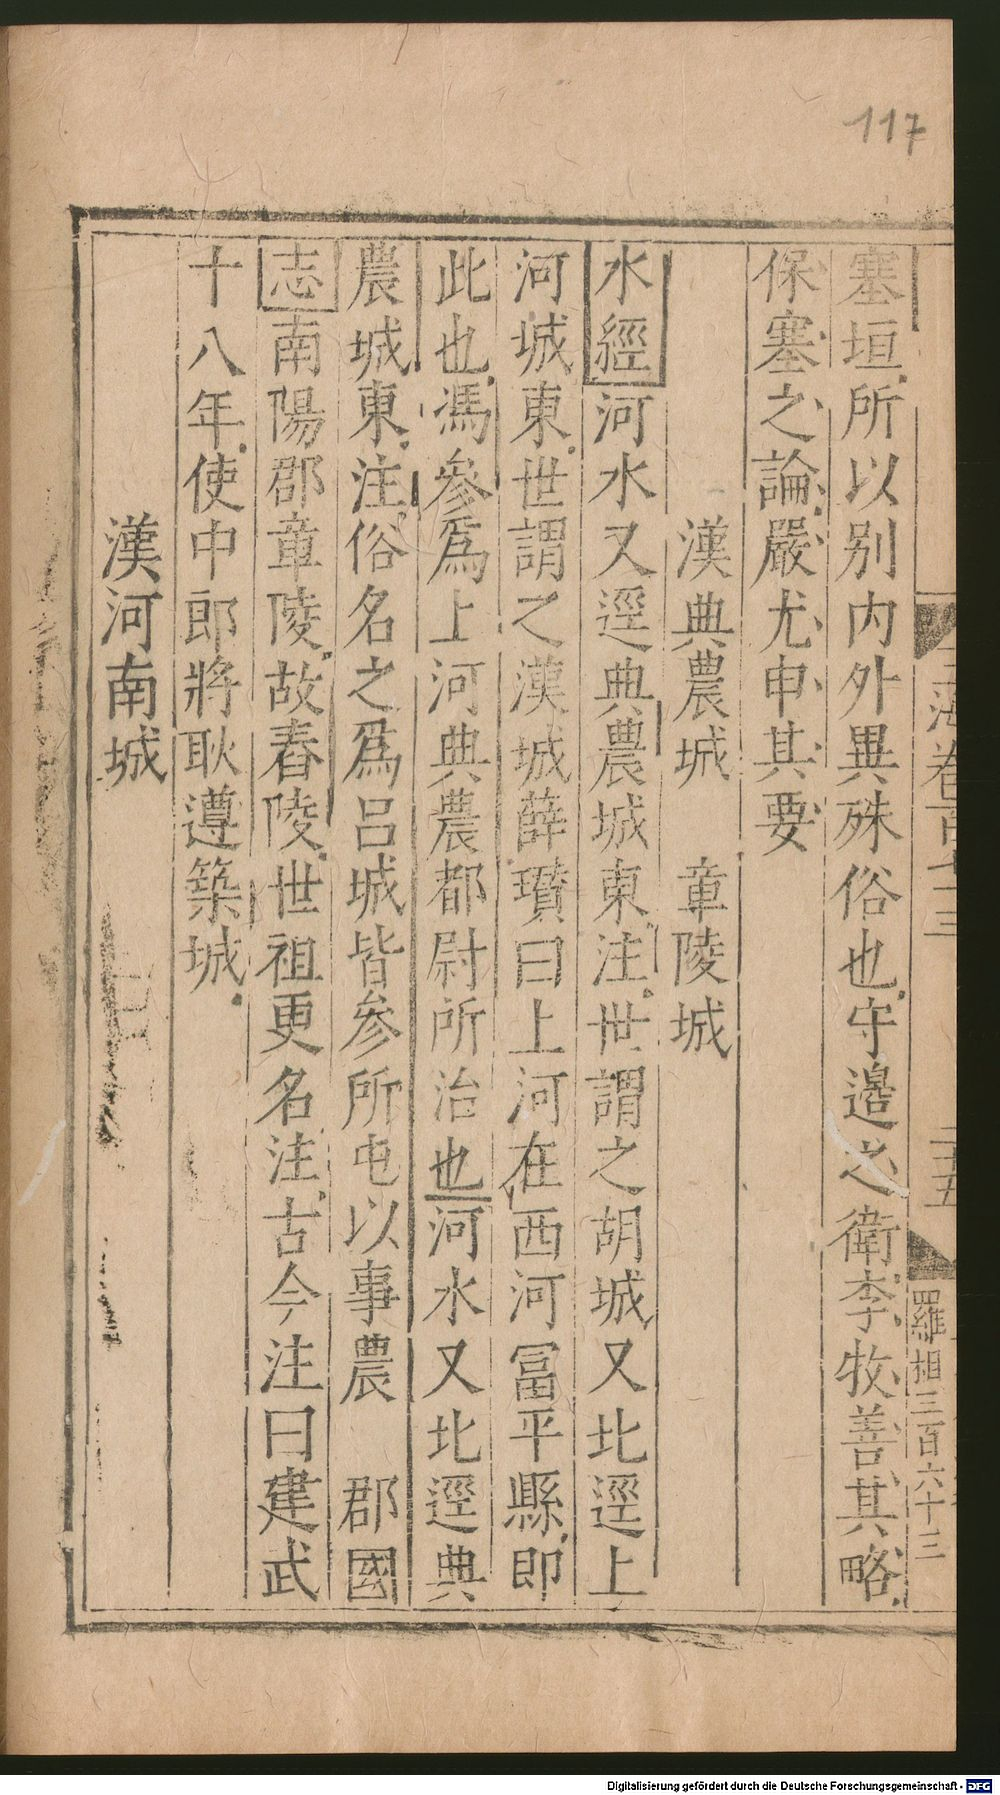 117
玉海卷百七十三
二十五
羅相三百六十三
塞垣所以别内外異殊俗也守邉之衛李牧善其略
保塞之論嚴尤申其要
漢典農城 章陵城
水經河水又逕典農城東注世謂之胡城又北逕上
河城東世謂之漢城薛瓚曰上河在西河冨平縣即
此也馮參爲上河典農都尉所治也河水又北逕典
農城東注俗名之爲吕城皆參所屯以事農 郡國
志南陽郡章陵故舂陵世祖更名注古今注曰建武
十八年使中郎將耿遵築城
漢河南城
Digitalisierung gefördert durch die Deutsche Forschungsgemeinschaft - DFG